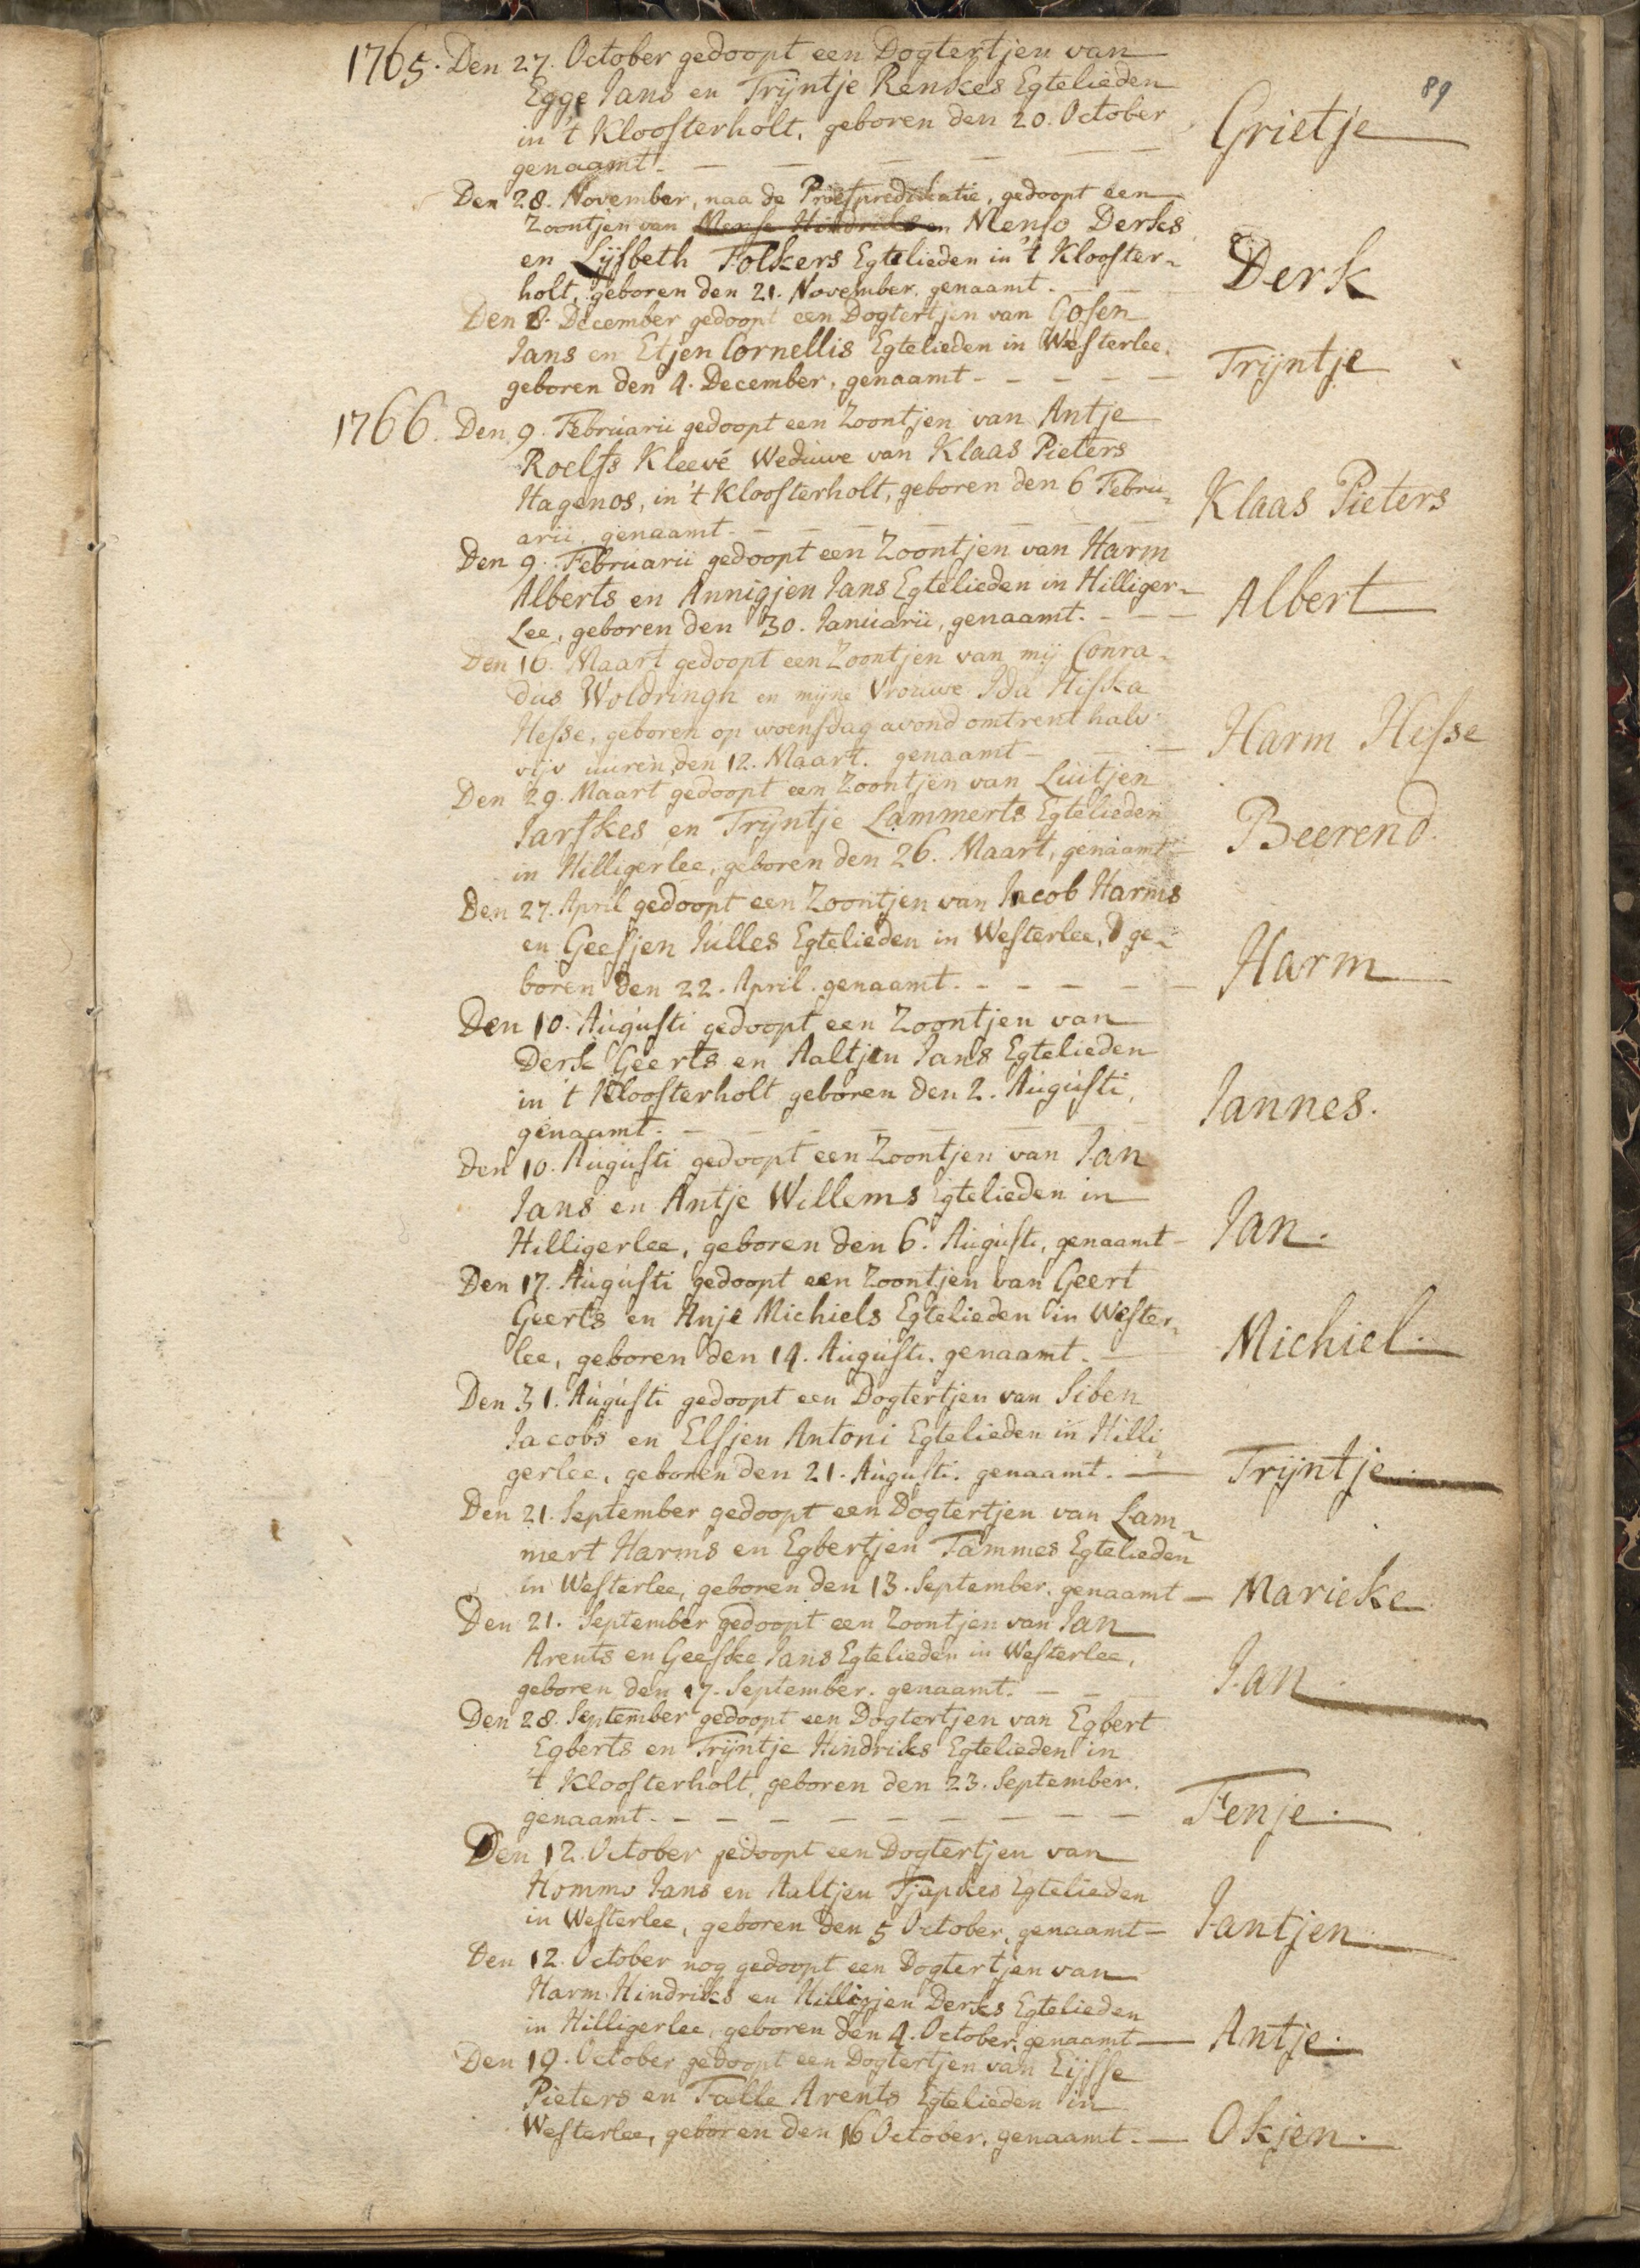 89
1765. Den 27. October gedoopt een Dogtertjen van
Egge Jans en Trijntje Renkes Egtelieden
in 't Kloosterholt, geboren den 20. October
genaamt. Grietje
Den 28. November, naa de Proefpredikatie, gedoopt een
Zoontjen van Menso Derks
en Lijsbeth Folkers Egtelieden in 't Klooster-
holt, geboren den 21. November. genaamt. Derk
Den 8. December gedoopt een Dogtertjen van Gosen
Jans en Etjen Cornellis Egtelieden in Westerlee.
geboren den 4. December, genaamt Trijntje
1766. Den 9. Februarii gedoopt een Zoontjen van Antje
Roelfs Kleevé Weduwe van Klaas Pieters
Hagenos, in 't Kloosterholt, geboren den 6 Febru-
arii. genaamt. Klaas Pieters
Den 9. Februarii gedoopt een Zoontjen van Harm
Alberts en Annigjen Jans Egtelieden in Hilliger-
Lee, geboren den 30. Januarii, genaamt. Albert
Den 16. Maart gedoopt een Zoontjen van mij Conra-
dus Woldringh en mijne Vrouwe Ida Hiska
Hesse, geboren op woensdag avond omtrent halv
vijv uuren, den 12. Maart. genaamt Harm Hesse
Den 29. Maart gedoopt een Zoontjen van Luitjen
Jarfkes en Trijntje Lammerts Egtelieden
in Hilligerlee, geboren den 26. Maart, genaamt Beerend.
Den 27. April gedoopt een Zoontjen van Jacob Harms
en Geesjen Julles Egtelieden in Westerlee, ge-
boren den 22. April. genaamt. Harm
Den 10. Augusti gedoopt een Zoontjen van
Derk Geerts en Aaltjen Jans Egtelieden
in 't Kloosterholt geboren den 2. Augusti,
genaamt. Jannes.
Den 10. Augusti gedoopt een Zoontjen van Jan
Jans en Antje Willems Egtelieden in
Hilligerlee, geboren den 6. Augusti, genaamt Jan.
Den 17. Augusti gedoopt een Zoontjen van Geert
Geerts en Anje Michiels Egtelieden in Wester-
lee, geboren den 14. Augusti. genaamt. Michiel.
Den 31. Augusti gedoopt een Dogtertjen van Siben
Jacobs en Elsjen Antoni Egtelieden in Hilli-
gerlee, geboren den 21. Augusti. genaamt. Trijntje.
Den 21. September gedoopt een Dogtertjen van Lam-
mert Harms en Egbertjen Tammes Egtelieden
in Westerlee, geboren den 13. September. genaamt Marieke
Den 21. September gedoopt een Zoontjen van Jan
Arents en Geeske Jans Egtelieden in Westerlee,
geboren den 17. September. genaamt. Jan.
Den 28. September gedoopt een Dogtertjen van Egbert
Egberts en Trijntje Hindriks Egtelieden in
't Kloosterholt, geboren den 23. September.
genaamt. Fenje.
Den 12. October gedoopt een Dogtertjen van
Hommo Jans en Aaltjen Tjapkes Egtelieden
in Westerlee, geboren den 5 October, genaamt Jantjen
Den 12. October nog gedoopt een Dogtertjen van
Harm Hindriks en Hilligjen Derks Egtelieden
in Hilligerlee, geboren den 4. October. genaamt Antje.
Den 19. October gedoopt een Dogtertjen van Eijsse
Pieters en Falle Arents Egtelieden in
Westerlee, geboren den 16 October. genaamt. Okjen.